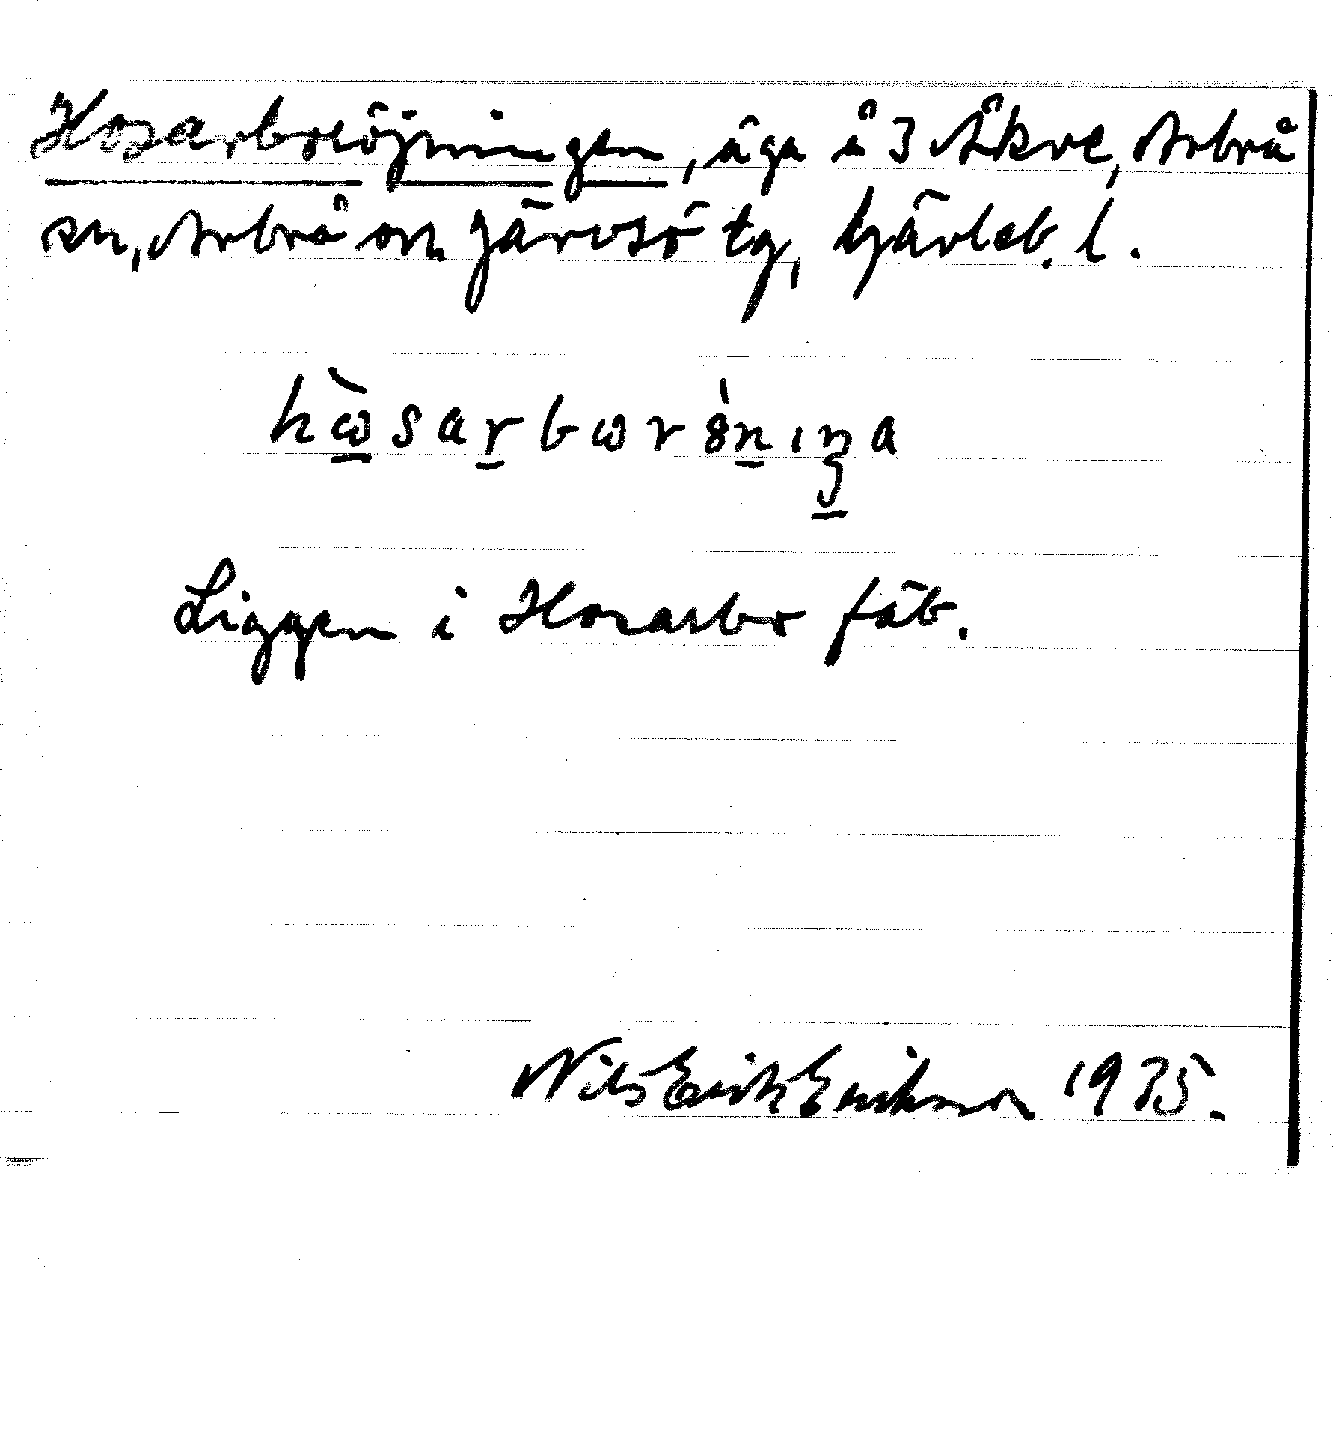 Hosarboröjningen, äga å 3 Åkre, Arbrå
sn, Arbrå och Järvsö tg, Gävleb. l.
hὼsarbωrö́nıŋa
Liggen i Hosarbo fäb.
Nils Erik Erikson 1935.